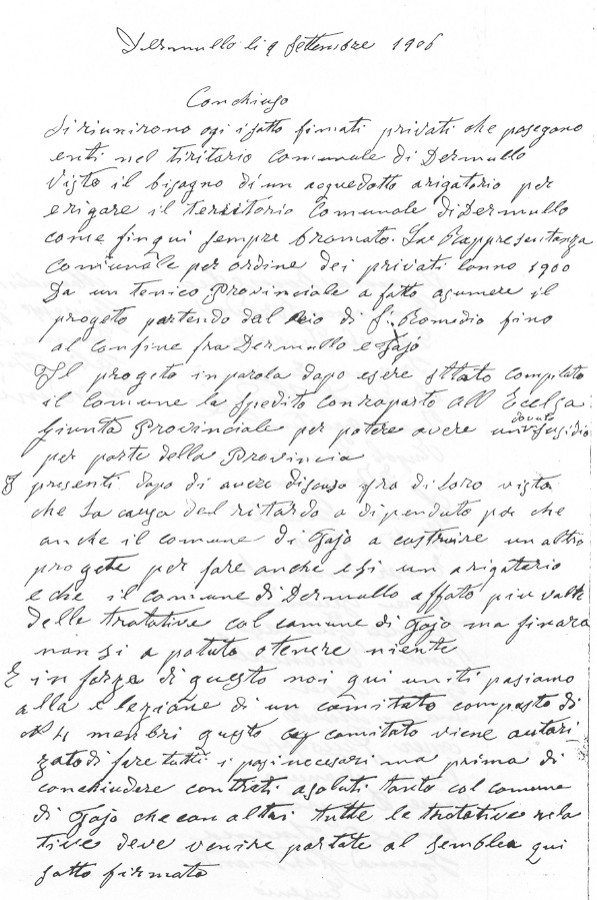 Dermullo li 9 Settembre 1906
Conchiuso
Si riunirono ogi i sotto firmati privati che posegono
enti nel tiritario comunale di Dermullo
Visto il bisagno di un acquedotto arigatorio per
erigare il territorio Comunale di Dermullo
come fin qui sempre bramato. La Rappresentanza
comunale per ordine dei privati lanno 1900
Da un tenico Provinciale a fatto asumere il
progeto partendo dal Rio di S. Romedio fino
al confine fra Dermullo e Tajo
Il progeto in parola dapo esere sttato compilato
il comune la spedito contraparto all Ecelsa
Giunta Provinciale per potere avere un dovuto susidio
per parte della Provincia
I presenti dapo di avere discuso fra di loro visto
che La causa del ritardo a dipenduto poi che
anche il comune di Tajo a costruire un altro
progete per fare anche esi un arigatorio
e che il comune di Dermullo affato piu valte
delle tratative col comune di Tajo ma finara
non si a potuto otenere niente
E in forza di questo noi qui uniti pasiamo
alla elezione di un comitato composto di
No 4 menbri questo comitato viene autari-
zato di fare tutti i pasi necesari ma prima di
conchiudere contrati asoluti tanto col comune
di Tajo che con altri tutte le tratative rela
tive deve venire partate al semblea qui
sotto firmato